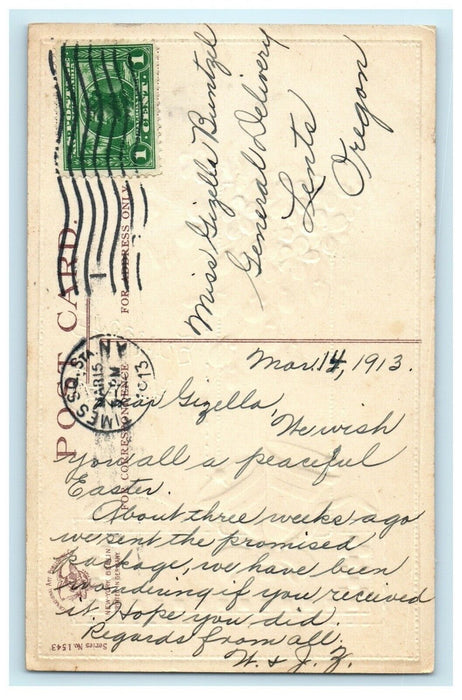 POST CARD.
FOR ADDRESS ONLY
FOR CORRESPONDENCE
1 CENT 1
MAR 15
5 PM
1913
Miss Gizella Buntzel
General Delivery
Lents
Oregon
Mar. 14, 1913.
Dear Gizella,
We wish
you all a peaceful
Easter.
About three weeks ago
we sent the promised
package, we have been
wondering if you received
it. Hope you did.
Regards from all.
W. & J. Z.
NEW YORK BERLIN
Series No. 1543